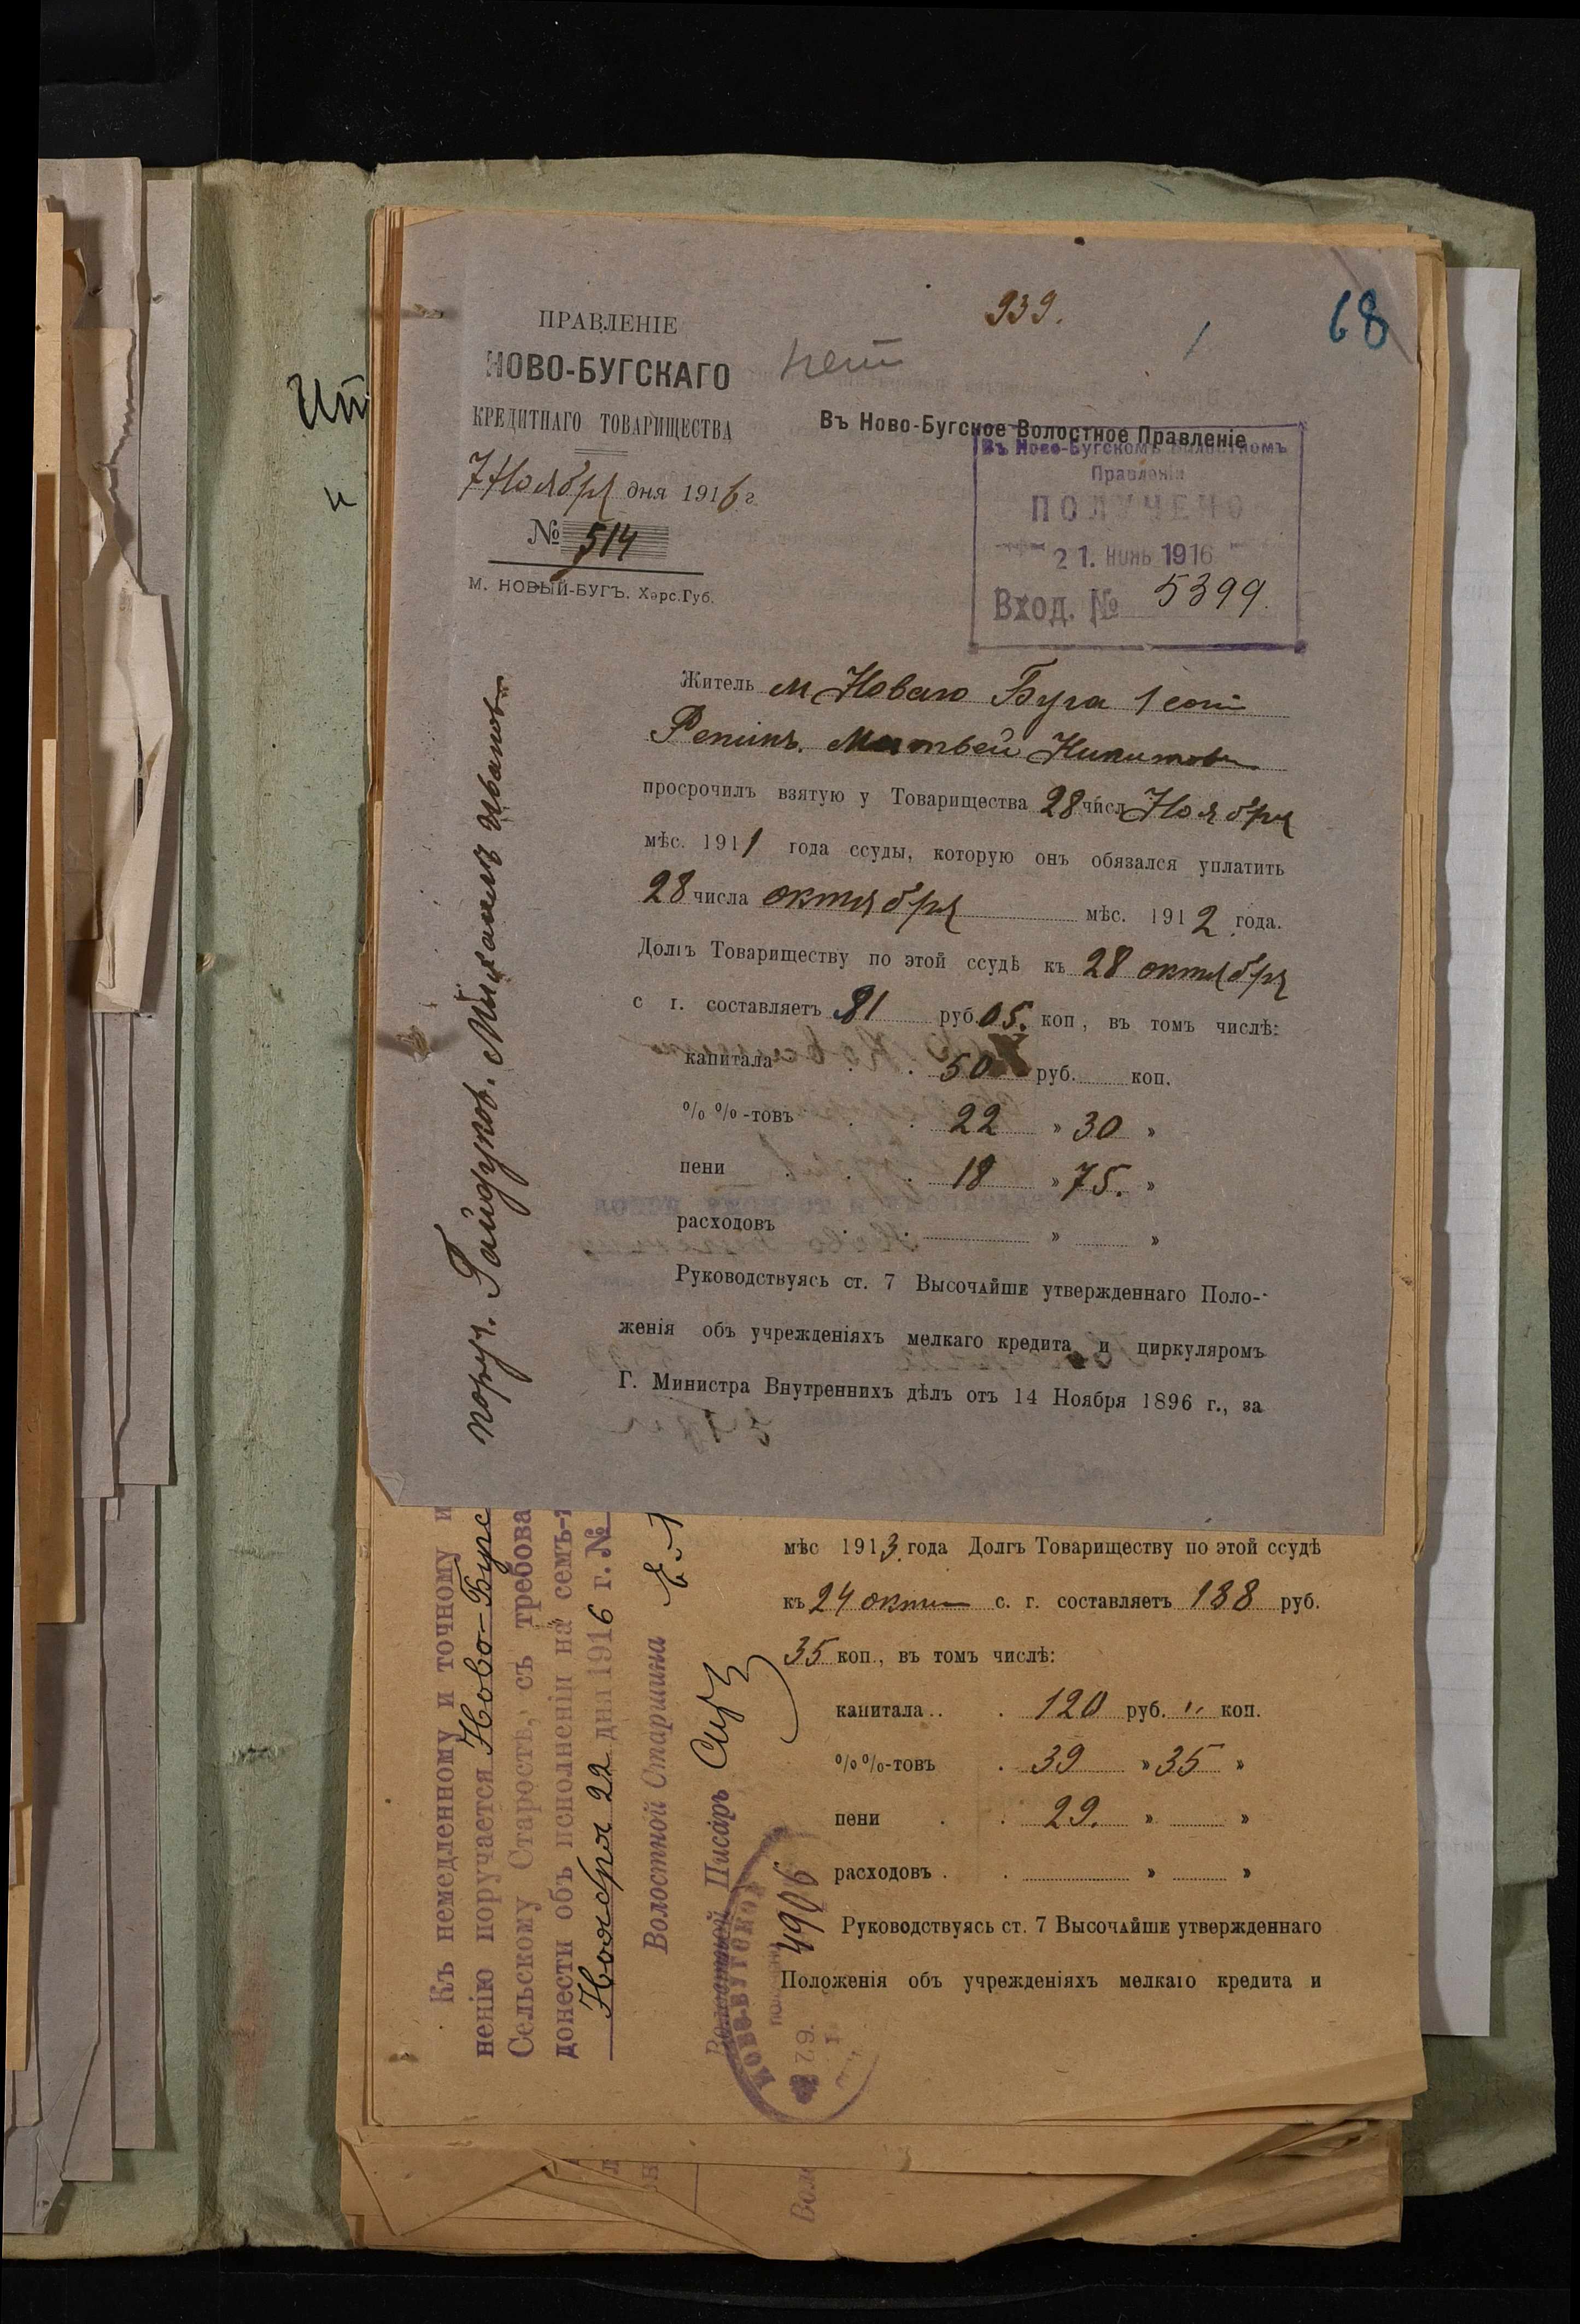 939.
68
ПРАВЛЕНІЕ
НОВО-БУГСКАГО
нет
КРЕДИТНАГО ТОВАРИЩЕСТВА
Въ Ново-Бугское Волостное Правленіе
7 Ноября дня 1916 г.
№ 514
М. НОВЫЙ-БУГЪ. Херс. Губ.
Въ Ново-Бугскомъ Волостномъ
Правленіи
ПОЛУЧЕНО
21. 1916
Вход. № 5399.
Житель м Новаго Буга 1
Репинъ. Матвей Никитовъ
просрочилъ взятую у Товарищества 28 числ Ноября
мѣс. 1911 года ссуды, которую онъ обязался уплатить
28 числа октября мѣс. 1912 года.
Долгъ Товариществу по этой ссудѣ къ 28 октября
с г. составляетъ 91 руб. 05. коп, въ томъ числѣ:
капитала 50 руб. коп.
% % -товъ 22 » 30 »
пени 18 » 75. »
расходовъ » »
Руководствуясь ст. 7 ВЫСОЧАЙШЕ утвержденнаго Поло-
женія объ учрежденіяхъ мелкаго кредита и циркуляромъ
Г. Министра Внутреннихъ дѣлъ отъ 14 Ноября 1896 г., за
поруч. Гайдуков. Михаилъ Иванов
мѣс 1913. года Долгъ Товариществу по этой ссудѣ
къ 24 окт с. г. составляетъ 188 руб.
35 коп., въ томъ числѣ:
капитала . . . 120 руб. " коп.
% %-товъ . 39 » 35 »
пени . . 29. » »
расходовъ . . » »
Руководствуясь ст. 7 ВЫСОЧАЙШЕ утвержденнаго
Положенія объ учрежденіяхъ мелкаго кредита и
Къ немедленному и точному и
ненію поручается Ново-Бугс
Сельскому Старостѣ, съ требова
донести объ исполненіи на семъ-
Ноября 22 дня 1916 г. №
Волостной Старшина
Волостной Писарь
4906